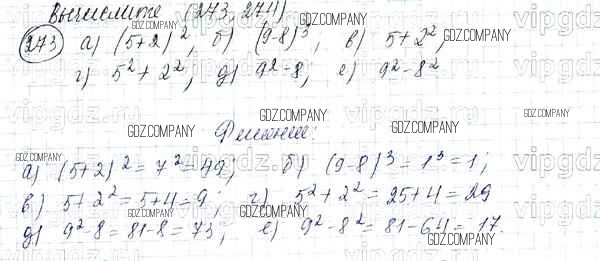 Вычислите (273, 274)
273 а) (5+2)², б) (9-8)³, в) 5+2²,
г) 5²+2², д) 9²-8, е) 9²-8²
Решение:
а) (5+2)²=7²=49; б) (9-8)³=1³=1;
в) 5+2²=5+4=9; г) 5²+2²=25+4=29
д) 9²-8=81-8=73; е) 9²-8²=81-64=17.
GDZ.COMPANY
vipgdz.ru